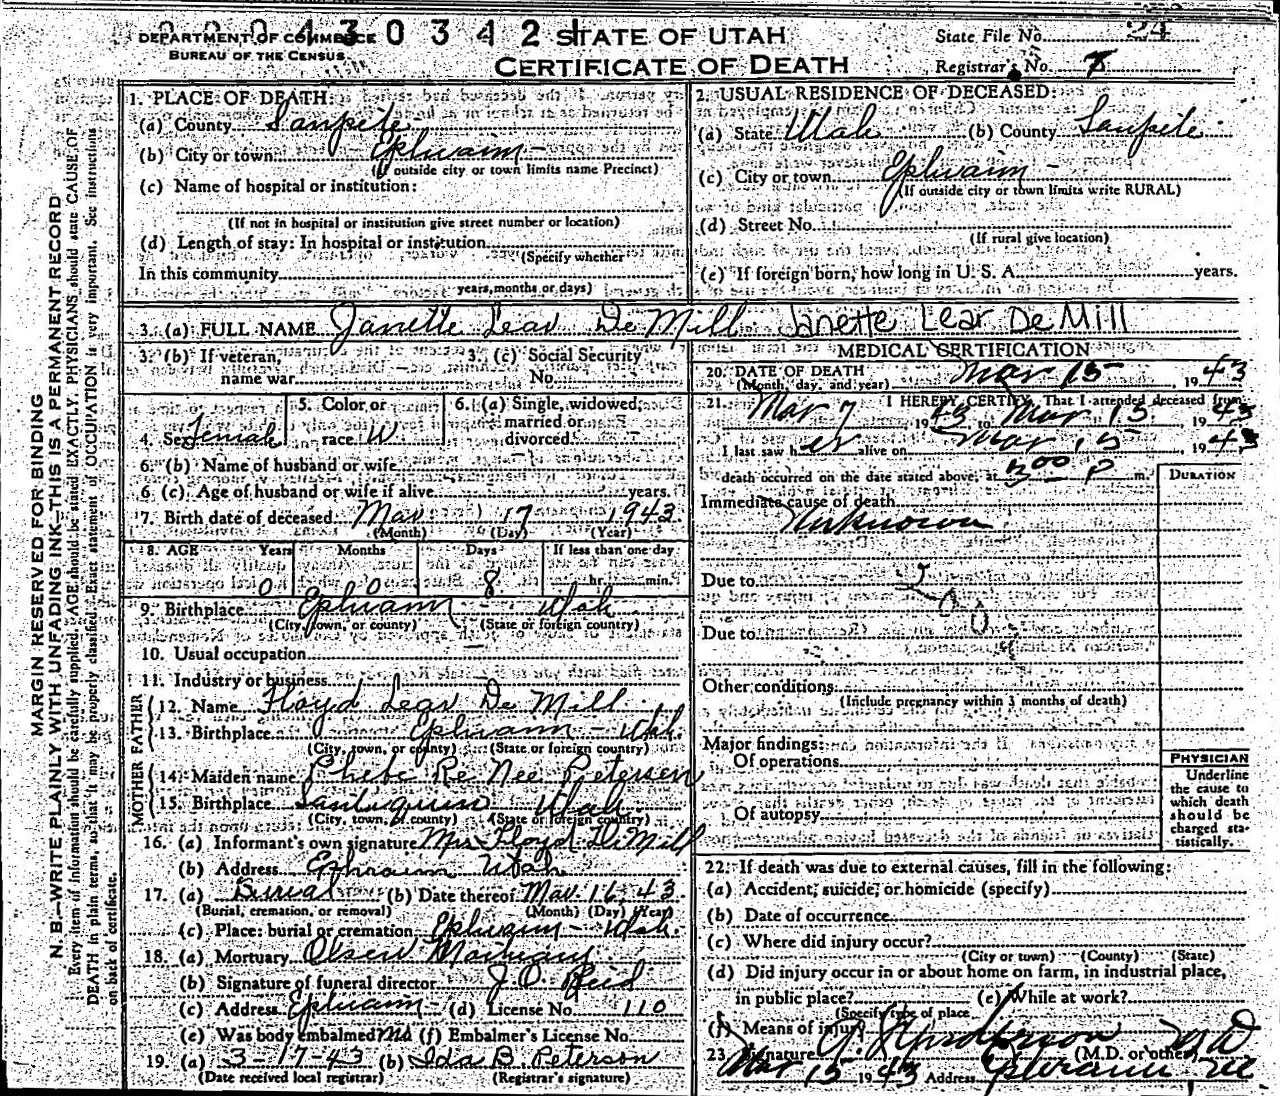 2 2 0 4 3 0 3 4 2 1
DEPARTMENT OF COMMERCE
BUREAU OF THE CENSUS
STATE OF UTAH
CERTIFICATE OF DEATH
State File No. 24
Registrar's No. 8
MARGIN RESERVED FOR BINDING
N. B.—WRITE PLAINLY WITH UNFADING INK—THIS IS A PERMANENT RECORD
Every item of information should be carefully supplied. AGE should be stated EXACTLY. PHYSICIANS should state CAUSE OF
DEATH in plain terms, so that it may be properly classified. Exact statement of OCCUPATION is very important. See instructions
on back of certificate.
1. PLACE OF DEATH:
(a) County Sanpete
(b) City or town Ephraim
(If outside city or town limits name Precinct)
(c) Name of hospital or institution:
(If not in hospital or institution give street number or location)
(d) Length of stay: In hospital or institution
(Specify whether
In this community
years, months or days)
2. USUAL RESIDENCE OF DECEASED:
(a) State Utah (b) County Sanpete
(c) City or town Ephraim
(If outside city or town limits write RURAL)
(d) Street No.
(If rural give location)
(e) If foreign born, how long in U. S. A. years.
3. (a) FULL NAME Janette Lear De Mill Janette Lear DeMill
3. (b) If veteran,
name war
3. (c) Social Security
No.
4. Sex Female
5. Color or
race W
6. (a) Single, widowed,
married or
divorced
6. (b) Name of husband or wife
6. (c) Age of husband or wife if alive years.
7. Birth date of deceased Mar 17 1943
(Month) (Day) (Year)
8. AGE Years Months Days If less than one day
0 0 8 hr. min.
9. Birthplace Ephraim - Utah
(City, town, or county) (State or foreign country)
10. Usual occupation
11. Industry or business
FATHER
12. Name Floyd Lear De Mill
13. Birthplace Ephraim - Utah.
(City, town, or county) (State or foreign country)
MOTHER
14. Maiden name Phebe Re Nee Petersen
15. Birthplace Santaquin Utah.
(City, town, or county) (State or foreign country)
16. (a) Informant's own signature Mrs Floyd DeMill
(b) Address Ephraim Utah
17. (a) Burial (b) Date thereof Mar 16, 43
(Burial, cremation, or removal) (Month) (Day) (Year)
(c) Place: burial or cremation Ephraim - Utah.
18. (a) Mortuary Olsen Mortuary
(b) Signature of funeral director
(c) Address Ephraim (d) License No. 110
(e) Was body embalmed No (f) Embalmer's License No.
19. (a) 3-17-43 (b) Ida B. Peterson
(Date received local registrar) (Registrar's signature)
MEDICAL CERTIFICATION
20. DATE OF DEATH
(Month, day, and year) Mar 15, 1943
21. I HEREBY CERTIFY, That I attended deceased from
Mar 7, 1943 to Mar 15, 1943
I last saw her alive on Mar 15, 1943
death occurred on the date stated above, at 3:00 P m.
DURATION
Immediate cause of death
Unknown
Due to
200
Due to
Other conditions
(Include pregnancy within 3 months of death)
Major findings:
Of operations
Of autopsy
PHYSICIAN
Underline
the cause to
which death
should be
charged sta-
tistically.
22. If death was due to external causes, fill in the following:
(a) Accident, suicide, or homicide (specify)
(b) Date of occurrence
(c) Where did injury occur?
(City or town) (County) (State)
(d) Did injury occur in or about home on farm, in industrial place,
in public place? (e) While at work?
(Specify type of place
(f) Means of injury
23. Signature M D
(M.D. or other)
Mar 15 1943 Address Ephraim